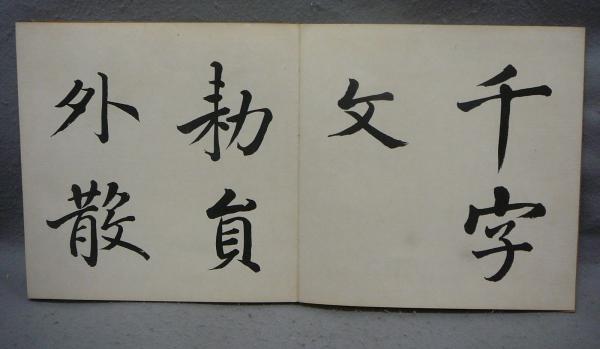 千字
文
勅員
外散